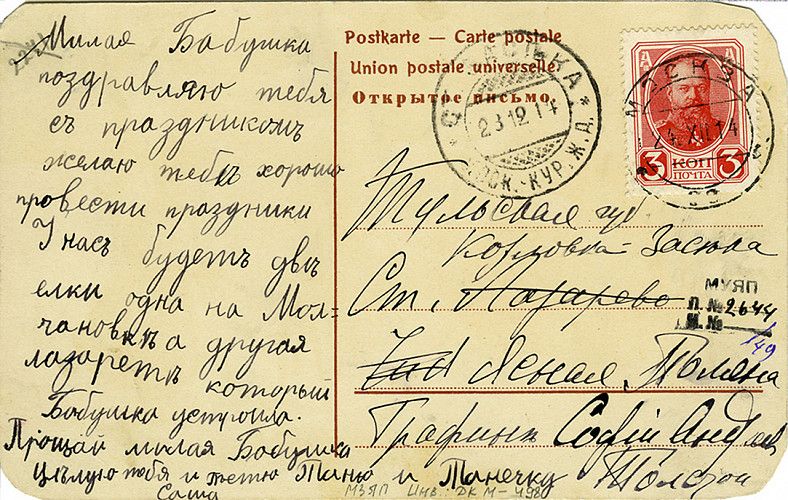 Милая Бабушка
поздравляю тебя
съ праздникомъ
желаю тебѣ хорошо
провести праздники
У насъ будетъ двѣ
елки одна на Мол=
чановкѣ а другая
лазаретѣ который
Бабушка устроила.
Прощай милая Бабушка
Цѣлую тебя и тетю Таню и Танечку
Саша
Postkarte — Carte postale
Union postale universelle
Открытое письмо
23 12 14
КУР. Ж.Д.
МОСКВА
24 XII 14
3 КОП 3
ПОЧТА
Тульская губ
Козловка Засѣка
Ст. Лазарево
Ясная Поляна
Графинѣ Софіи Андреев
Толстой
МУЯП
П. № 2644
И. №
1/49
МЗЯП Инв: ДКМ-498